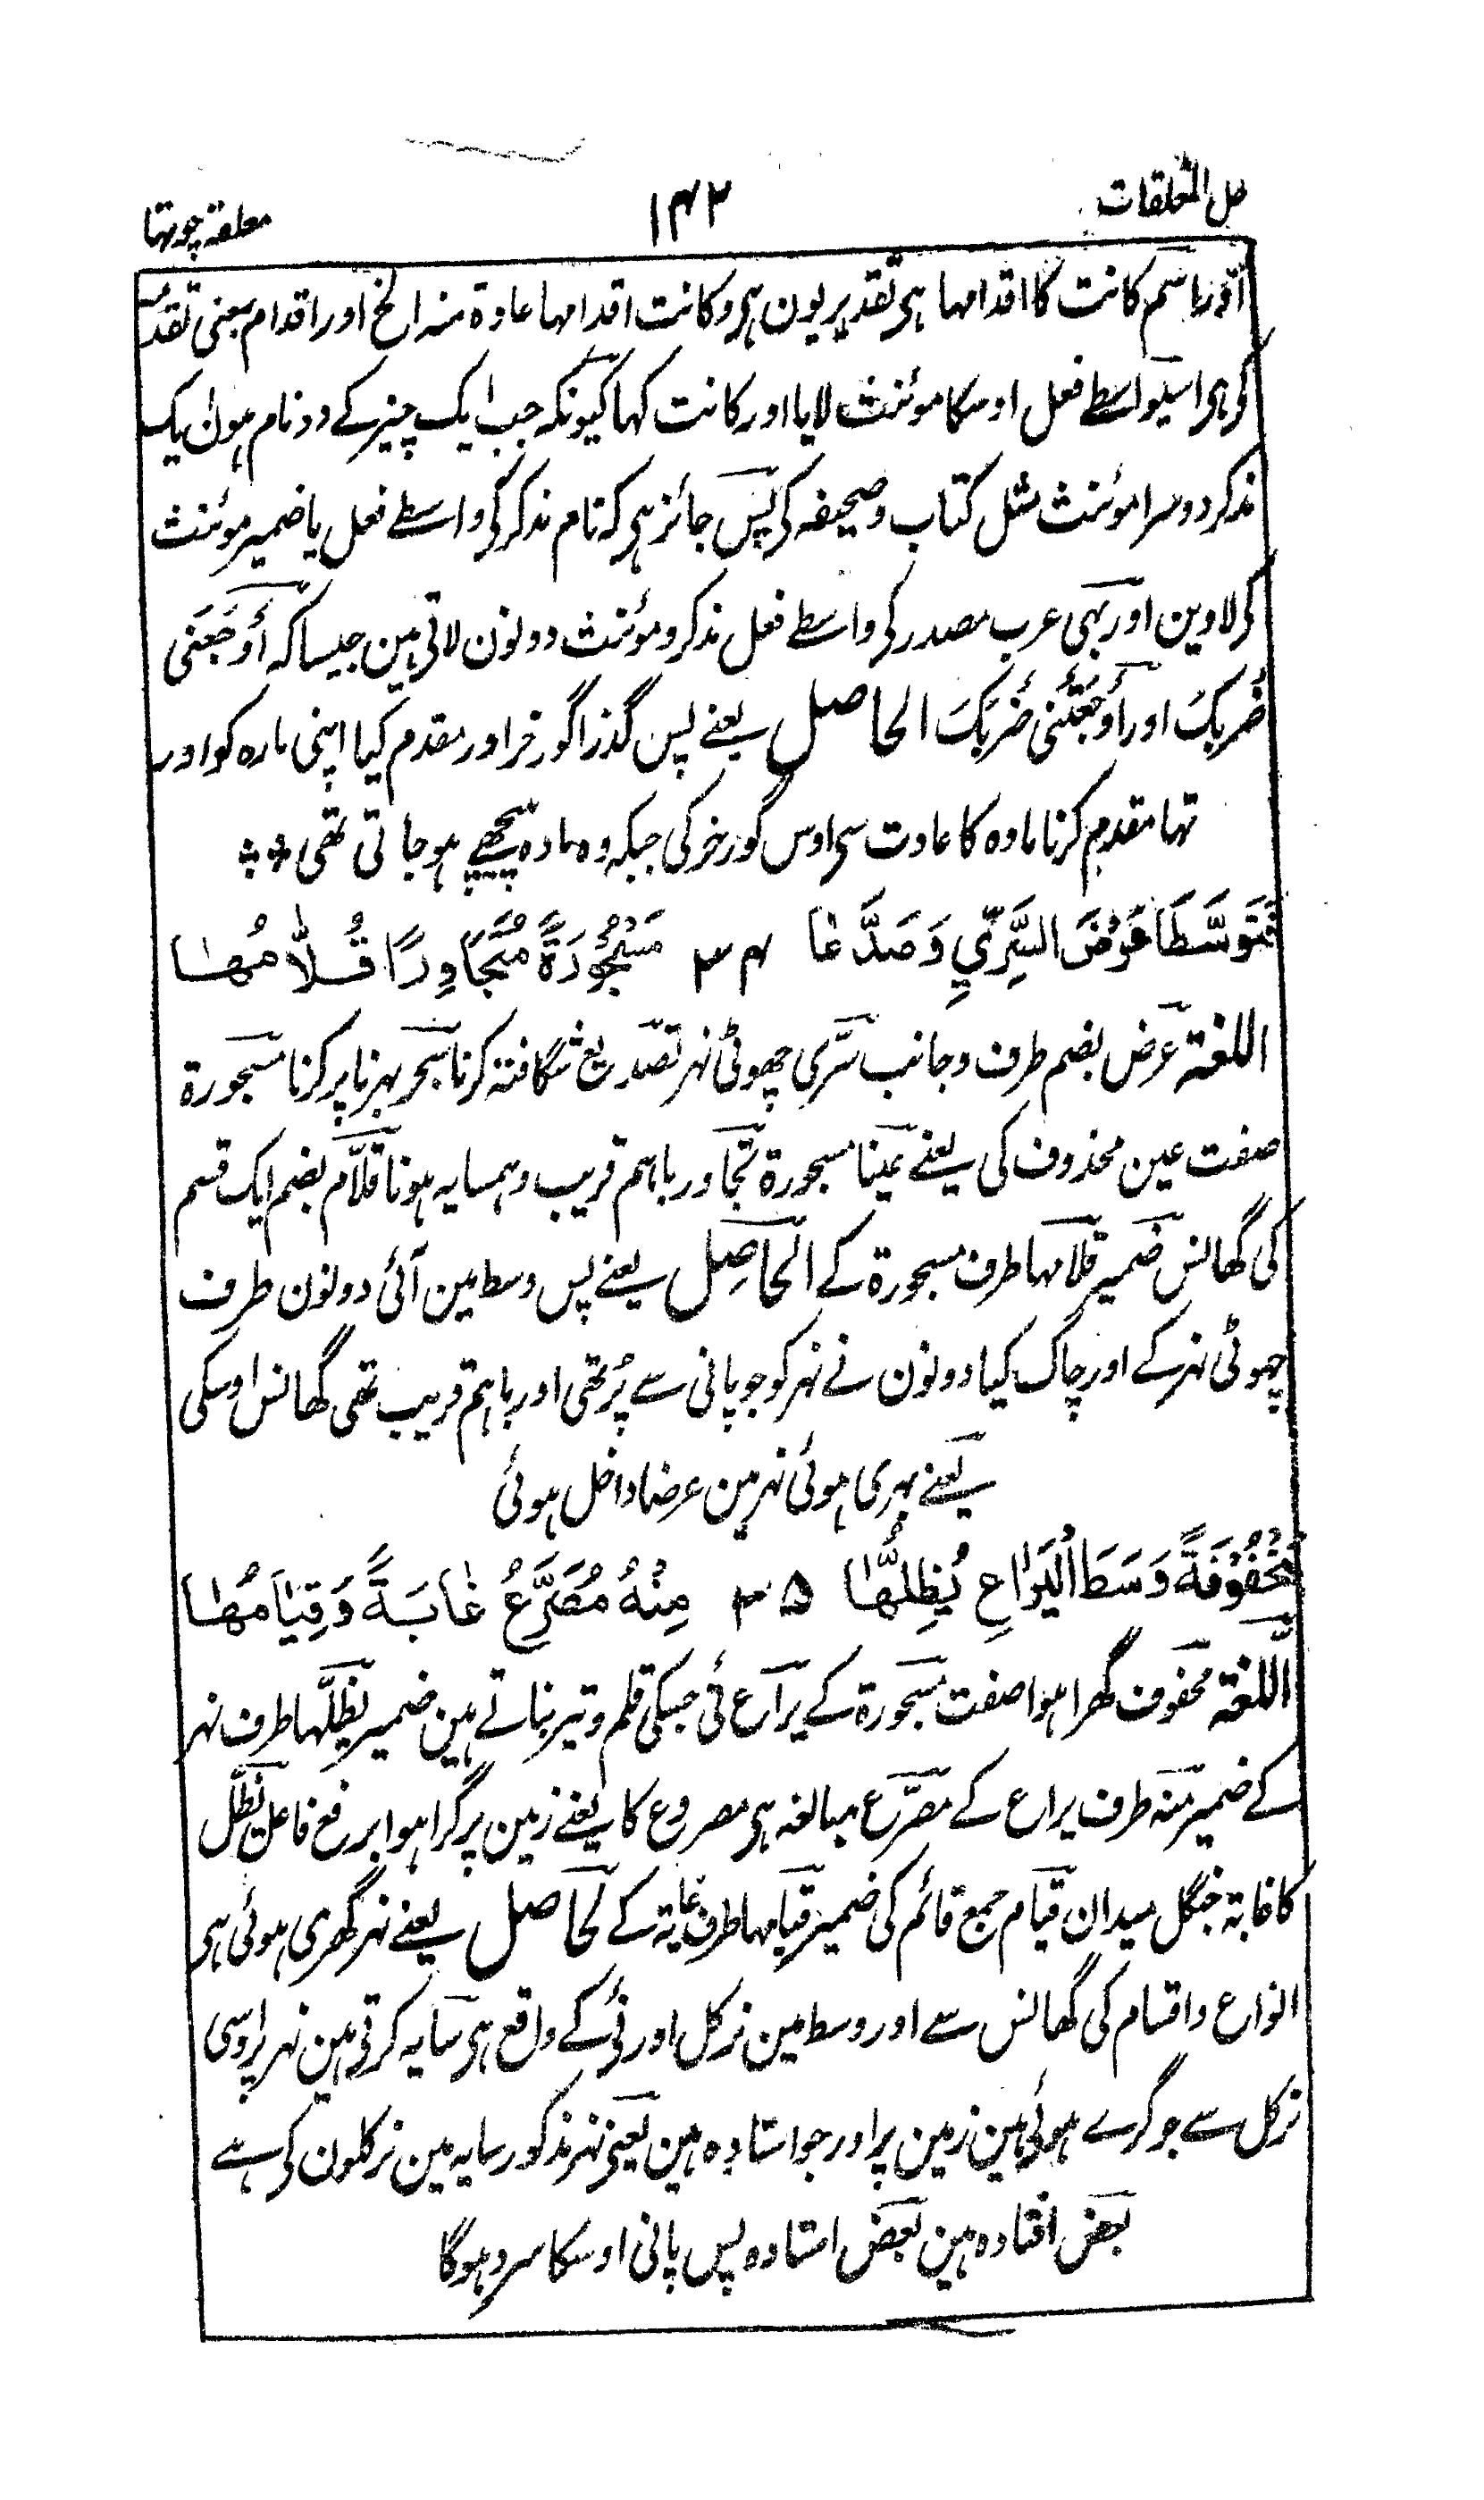 حل المعلقات ۱۴۲ معلقہ چوتہا
اور اسم کانت کا اقدامہا ہی تقدیر یون ہی وکانت اقدامہا عادۃ منہ الخ اور اقدام بمعنی تقدمہ
کی ہی اسیواسطے فعل اوسکا موئنث لایا اور کانت کہا کیونکہ جب ایک چیز کے دو نام ہون ایک
مذکر دوسرا موئنث مثل کتاب وصحیفہ کی پس جائز ہی کہ نام مذکر کی واسطے فعل یا ضمیر موئنث
کی لاوین اور بہی عرب مصدر کی واسطے فعل مذکر وموئنث دونون لاتی ہین جیسا کہ أَوْجَعَنی
ضَرْبکَ اور أَوْجَعَتْنی ضَرْبکَ الحاصل یعنے پس گذرا گورخر اور مقدم کیا اپنی مادہ کو اور
تہا مقدم کرنا مادہ کا عادت سی اوس گورخر کی جبکہ وہ مادہ پیچھے ہو جاتی تھی
فَتَوَسَّطَا عُرْضَ السَّرِيِّ وَصَدَّعَا ۳۴ مَسْجُوْرَةً مُتَجَاوِرًا قُلَّامُهَا
اللغۃ عرض بضم طرف وجانب سَری چھوٹی نہر تصدیع شگافتہ کرنا سجر بہرنا پر کرنا مسجورۃ
صفت عین محذوف کی یعنے عینا مسجورۃ تجاور باہم قریب وہمسایہ ہونا قلّام بضم ایک قسم
کی گھانس ضمیر قلامہا طرف مسجورۃ کے الحَاصِل یعنے پس وسط مین آئی دونون طرف
چھوٹی نہر کے اور چاک کیا دونون نے نہر کو جو پانی سے پُر تھی اور باہم قریب تھی گھانس اوسکی
یعنے بہری ہوئی نہر مین عرضا داخل ہوئی
مَحْفُوْفَةً وَسَطَ الْيَرَاعِ يُظِلُّهَا ۳۵ مِنْهُ مُصَرَّعُ غَابَةٍ وَقِيَامُهَا
اللغۃ محفوف گھرا ہوا صفت مسجورۃ کے یراع نَی جسکی قلم وتیر بناتے ہین ضمیر یظلّہا طرف نہر
کے ضمیر منہ طرف یراع کے مصرّع مبالغہ ہی مصروع کا یعنے زمین پر گرا ہوا برفع فاعل یظلّ
کا غابۃ جنگل میدان قیام جمع قائم کی ضمیر قیامہا طرف غابۃ کے لحاصل یعنے نہر گھری ہوئی ہی
انواع واقسام کی گھانس سے اور وسط مین نرکل اور نَی کے واقع ہی سایہ کرتی ہین نہر پر اوسی
نرکل سے جو گرے ہوئی ہین زمین پر اور جو استادہ ہین یعنی نہر مذکور سایہ مین نرکلون کی ہے
بعض افتادہ ہین بعض استادہ پس پانی اوسکا سرد ہوگا